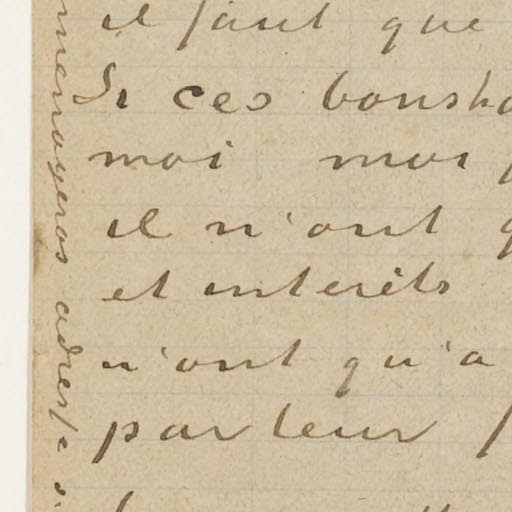 il faut que
Si ces bonsho
moi moi
il n'ont q
et interêts
n'ont qu'a
par leur
menoyeras adresse